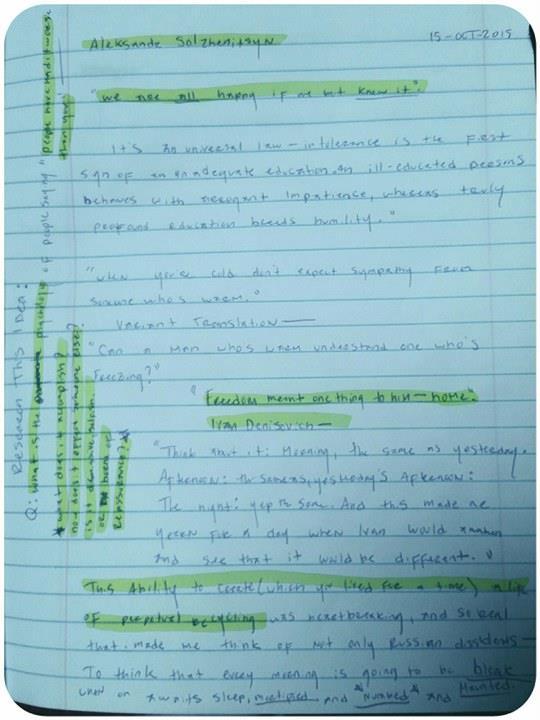 Aleksandr Solzhenitsyn
15-OCT-2015
"we are all happy if we but knew it".
It's an universal law – intolerance is the first
sign of an inadequate education. An ill-educated persons
behaves with arrogant impatience, whereas truly
profound education breeds humility."
"when you're cold don't expect sympathy from
someone who's warm."
Variant Translation —
"Can a man who's warm understand one who's
Freezing?"
"Freedom meant one thing to him — home."
Ivan Denisovich —
"Think about it: Morning, the same as yesterday.
Afternoon: the same as, yesterday's Afternoon:
The night: yep the same. And this made me
yearn for a day when Ivan would
and see that it would be different."
This Ability to create (which you lived for a time) a life
of perpetual recycling was heartbreaking, and so real
that it made me think of not only Russian dissidents
To think that every morning is going to be bleak
awaits sleep, and "Numbed" and Haunted.
Research This Idea:
Q: What is the psychology of people saying "people have had it worse
than you"
* what does it accomplish?
how does it affect someone else?
is it
or
Reassurance? *